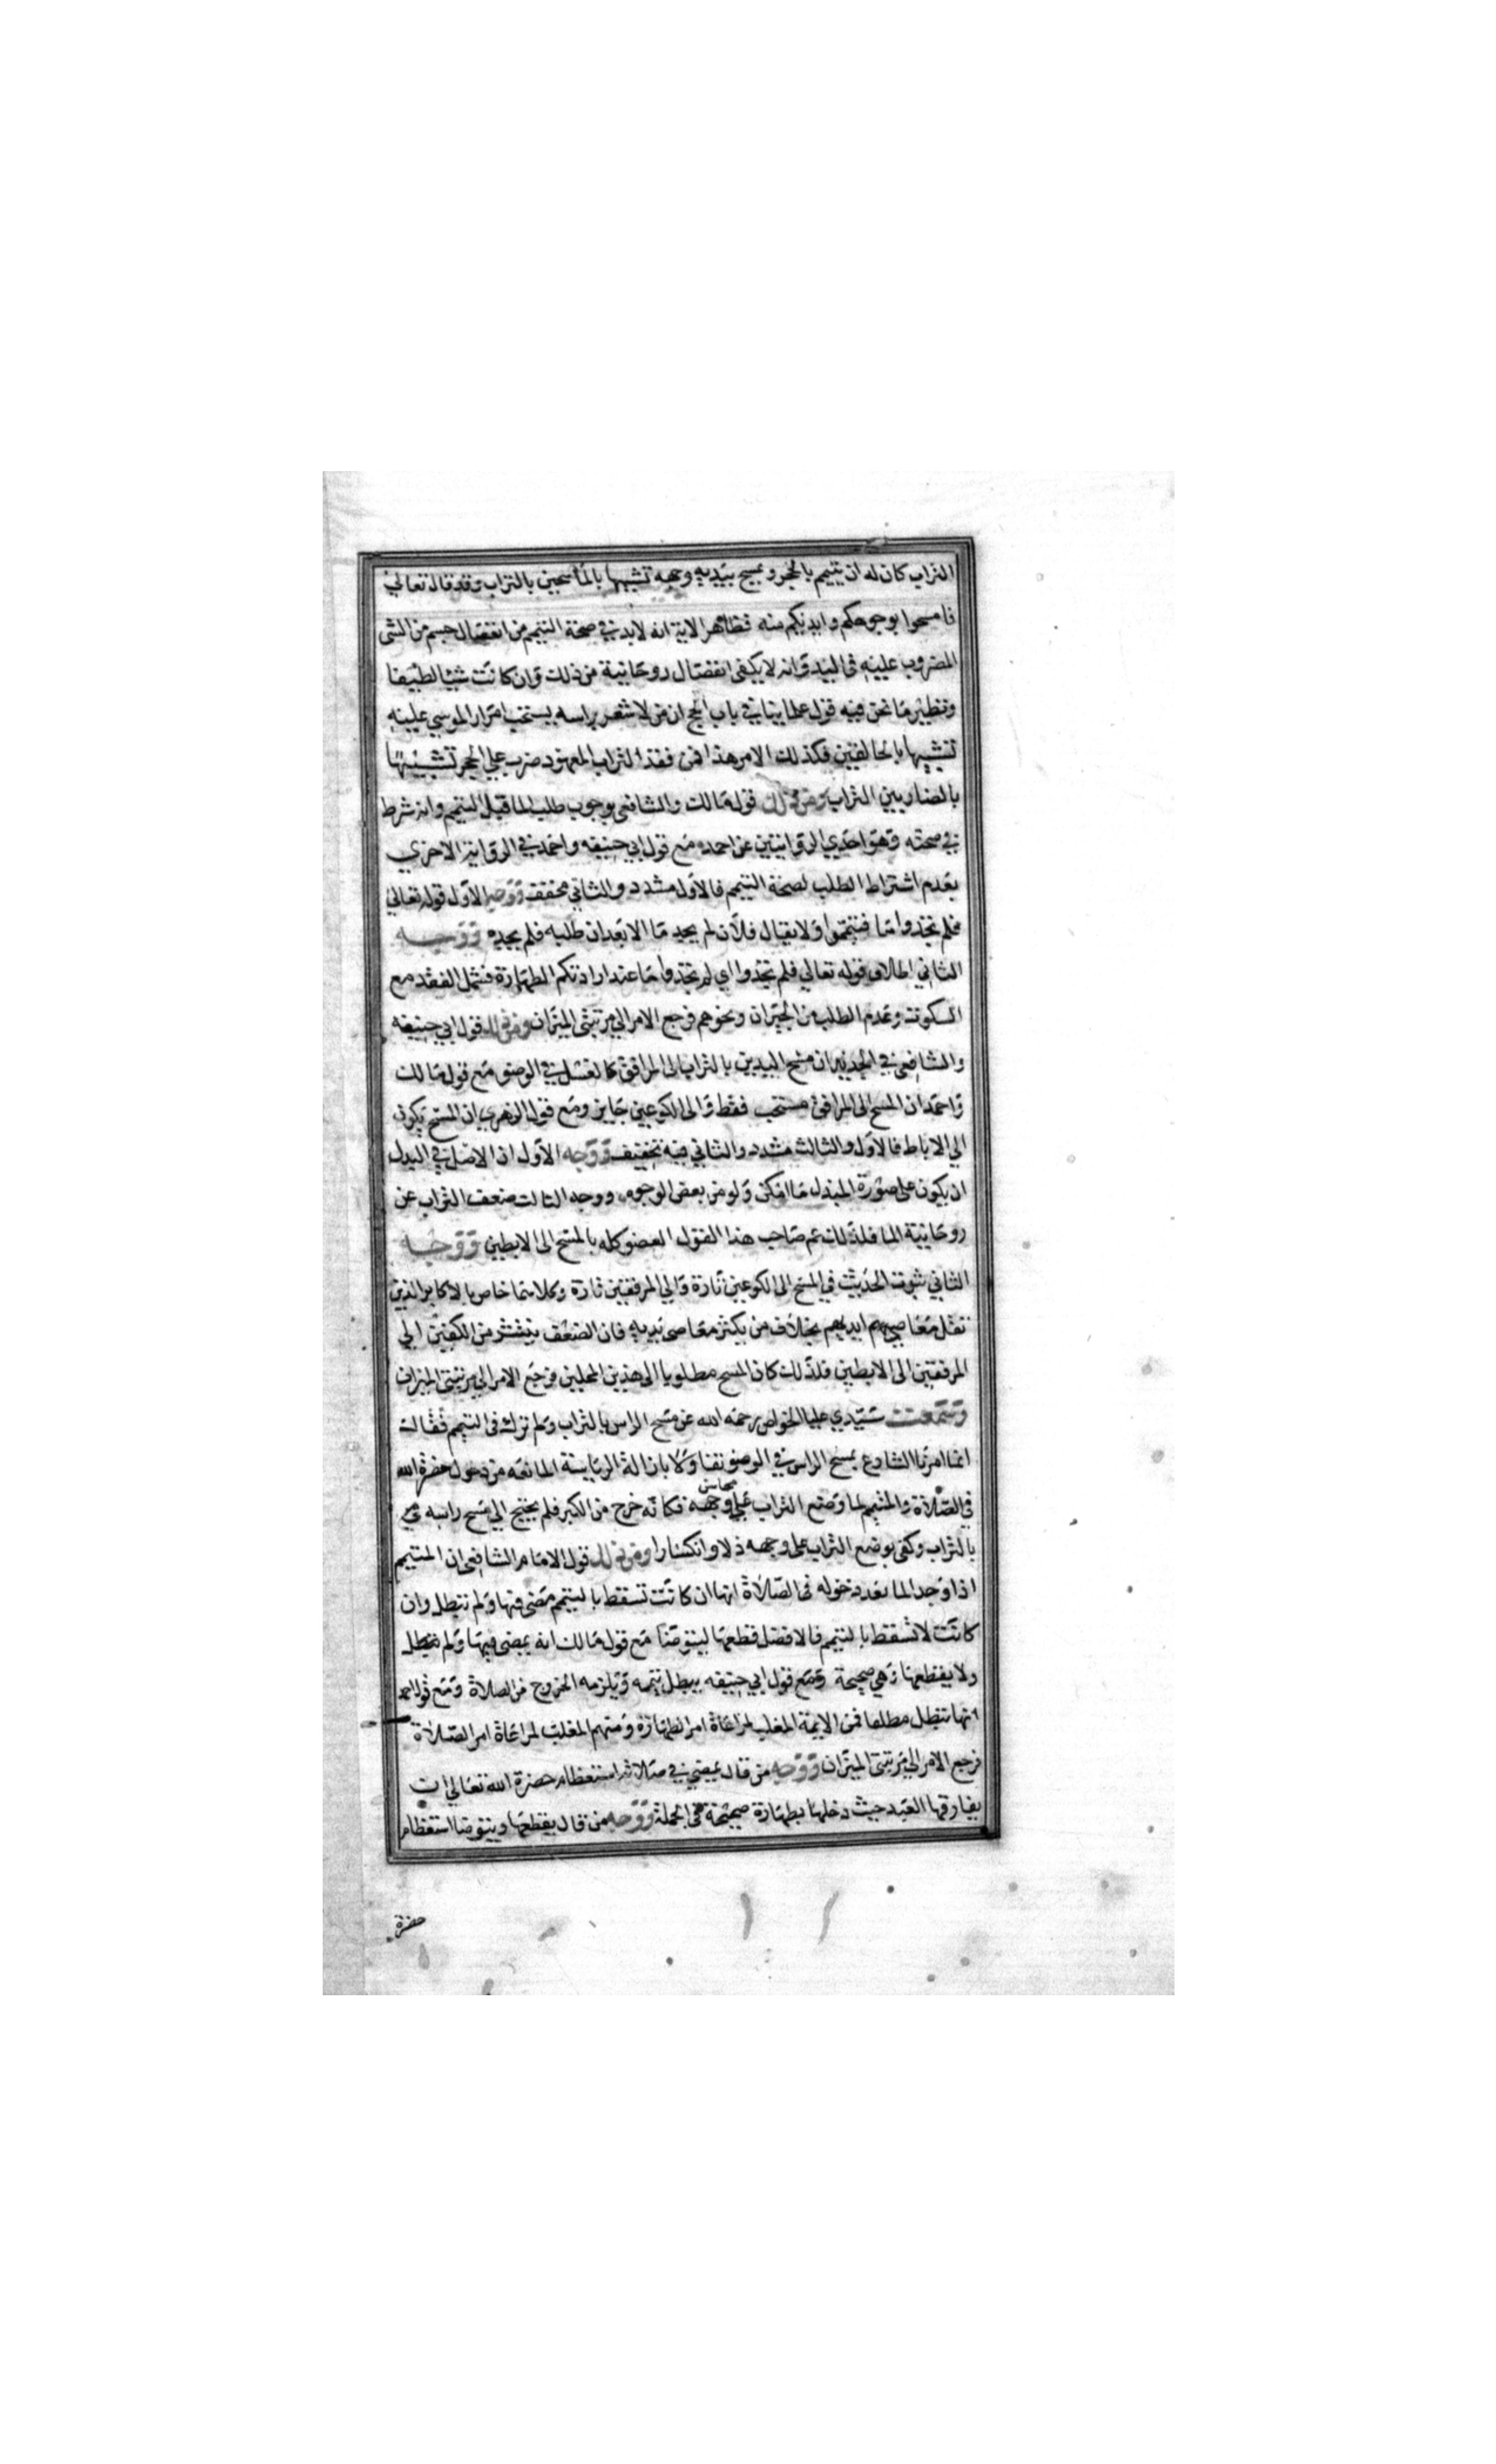 التراب كان له ان يتيمم بالحجر ويمسح بيديه وجهه تشبيها بالماسحين بالتراب وقد قال تعالى
فامسحوا بوجوهكم وايديكم منه فظاهر الاية انه لابد في صحة التيمم من انفصال جسم من الشى
المضروب عليه فى اليد وانه لا يكفى انفصال روحانية من ذلك وان كانت شيئا لطيفا
ونظير ما نحن فيه قول علمائنا في باب الحج ان من لا شعر براسه يستحب امرار الموسي عليه
تشبيها بالحالقين فكذلك الامر هذا فمن فقد التراب المعهود ضرب على الحجر تشبيها
بالضاربين التراب ومن ذلك قول مالك والشافعى بوجوب طلب الما قبل التيمم وانه شرط
في صحته وهو احدي الروايتين عن احمد مع قول ابي حنيفه واحمد في الرواية الاخري
بعدم اشتراط الطلب لصحة التيمم فالاول مشدد والثاني مخفف ووجه الاول قوله تعالى
فلم تجدوا ما فتيمموا ولا يقال فلان لم يجد ما الا بعد ان طلبه فلم يجده ووجه
الثاني اطلاق قوله تعالي فلم تجدوا اي لم تجدوا ما عند ارادتكم الطهارة فشمل الفقد مع
السكوت وعدم الطلب من الجيران ونحوهم فرجع الامر الي مرتبتى الميزان ومن ذلك قول ابي حنيفه
والشافعى في الجديد ان مسح اليدين بالتراب الى المرافق كالغسل في الوضو مع قول مالك
واحمد ان المسح الى المرافق مستحب فقط والى الكوعين جايز ومع قول الزهري ان المسح يكون
الي الاباط فالاول والثالث مشدد والثاني فيه تخفيف ووجه الاول ان الاصل في البدل
ان يكون على صورة المبدل ما امكن ولو من بعض الوجوه ووجه الثالث ضعف التراب عن
روحانية الما فلذلك عم صاحب هذا القول العضو كله بالمسح الى الابطين ووجه
الثاني ثبوت الحديث في المسح الى الكوعين تارة والي المرفقين تارة وكلاهما خاص بالاكابر الذين
تقل معاصيهم ايديهم بخلاف من يكثر معاصى يديه فان الضعف ينتشر من الكفين الي
المرفقين الى الابطين فلذلك كان المسح مطلوبا الى هذين المحلين فرجع الامر الي مرتبتى الميزان
وسمعت سيدي عليا الخواص رحمه الله عن مسح الراس بالتراب ولم ترك فى التيمم فقال
انما امرنا الشارع بمسح الراس في الوضو تفاولا بازالة الرياسة المانعه من دخول حضرة الله
في الصلاة والمتيمم لما وضع التراب على محاسن وجهه فكانه خرج من الكبر فلم يحتج الي مسح راسه
بالتراب وكفى بوضع التراب على وجهه ذلا وانكسارا ومن ذلك قول الامام الشافعى ان المتيمم
اذا وجد الما بعد دخوله فى الصلاة انها ان كانت تسقط بالتيمم مضى فيها ولم تبطل وان
كانت لا تسقط بالتيمم فالافضل قطعها ليتوضا مع قول مالك انه يمضى فيها ولم تبطل
ولا يقطعها وهى صحيحة ومع قول ابي حنيفه يبطل تيممه ويلزمه الخروج من الصلاة ومع قول احمد
انها تبطل مطلقا فمن الايمة المغلب لمراعاة امر الطهارة ومنهم المغلب لمراعاة امر الصلاة
فرجع الامر الي مرتبتى الميزان ووجه من قال يمضى في صلاته استعظام حضرة الله تعالى ان
يفارقها العبد حيث دخلها بطهارة صحيحة في الجملة ووجه من قال يقطعها ويتوضا استعظام
حضرة